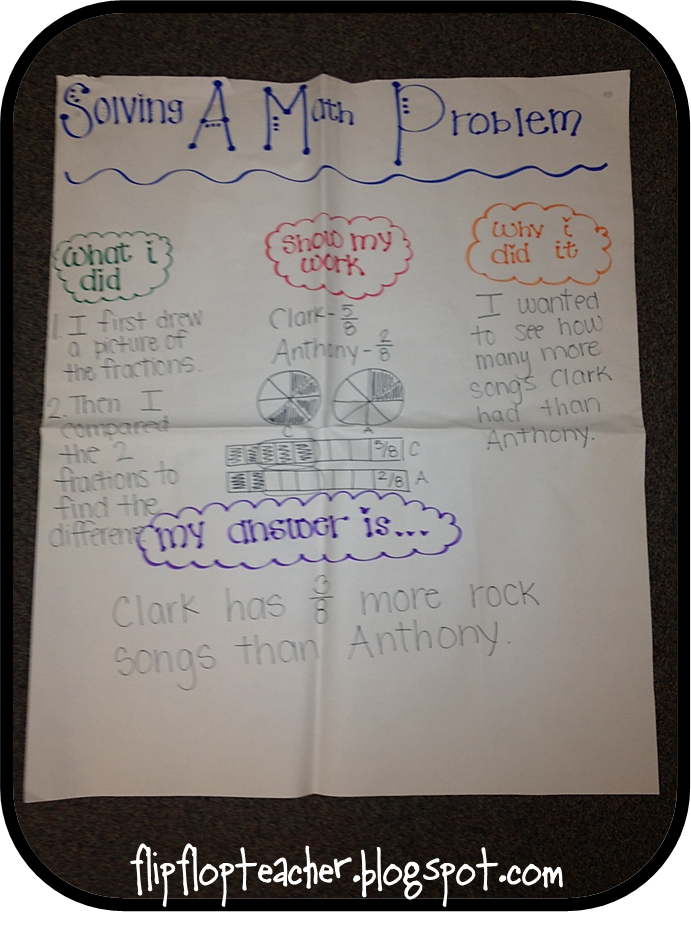 Solving A Math Problem
what i
did
1. I first drew
a picture of
the fractions.
2. Then I
compared
the 2
fractions to
find the
show my
work
Clark - 5/8
Anthony - 2/8
C
A
5/8 C
2/8 A
why i
did it
I wanted
to see how
many more
songs Clark
had than
Anthony.
my answer is...
Clark has 3/8 more rock
songs than Anthony.
flipflopteacher.blogspot.com